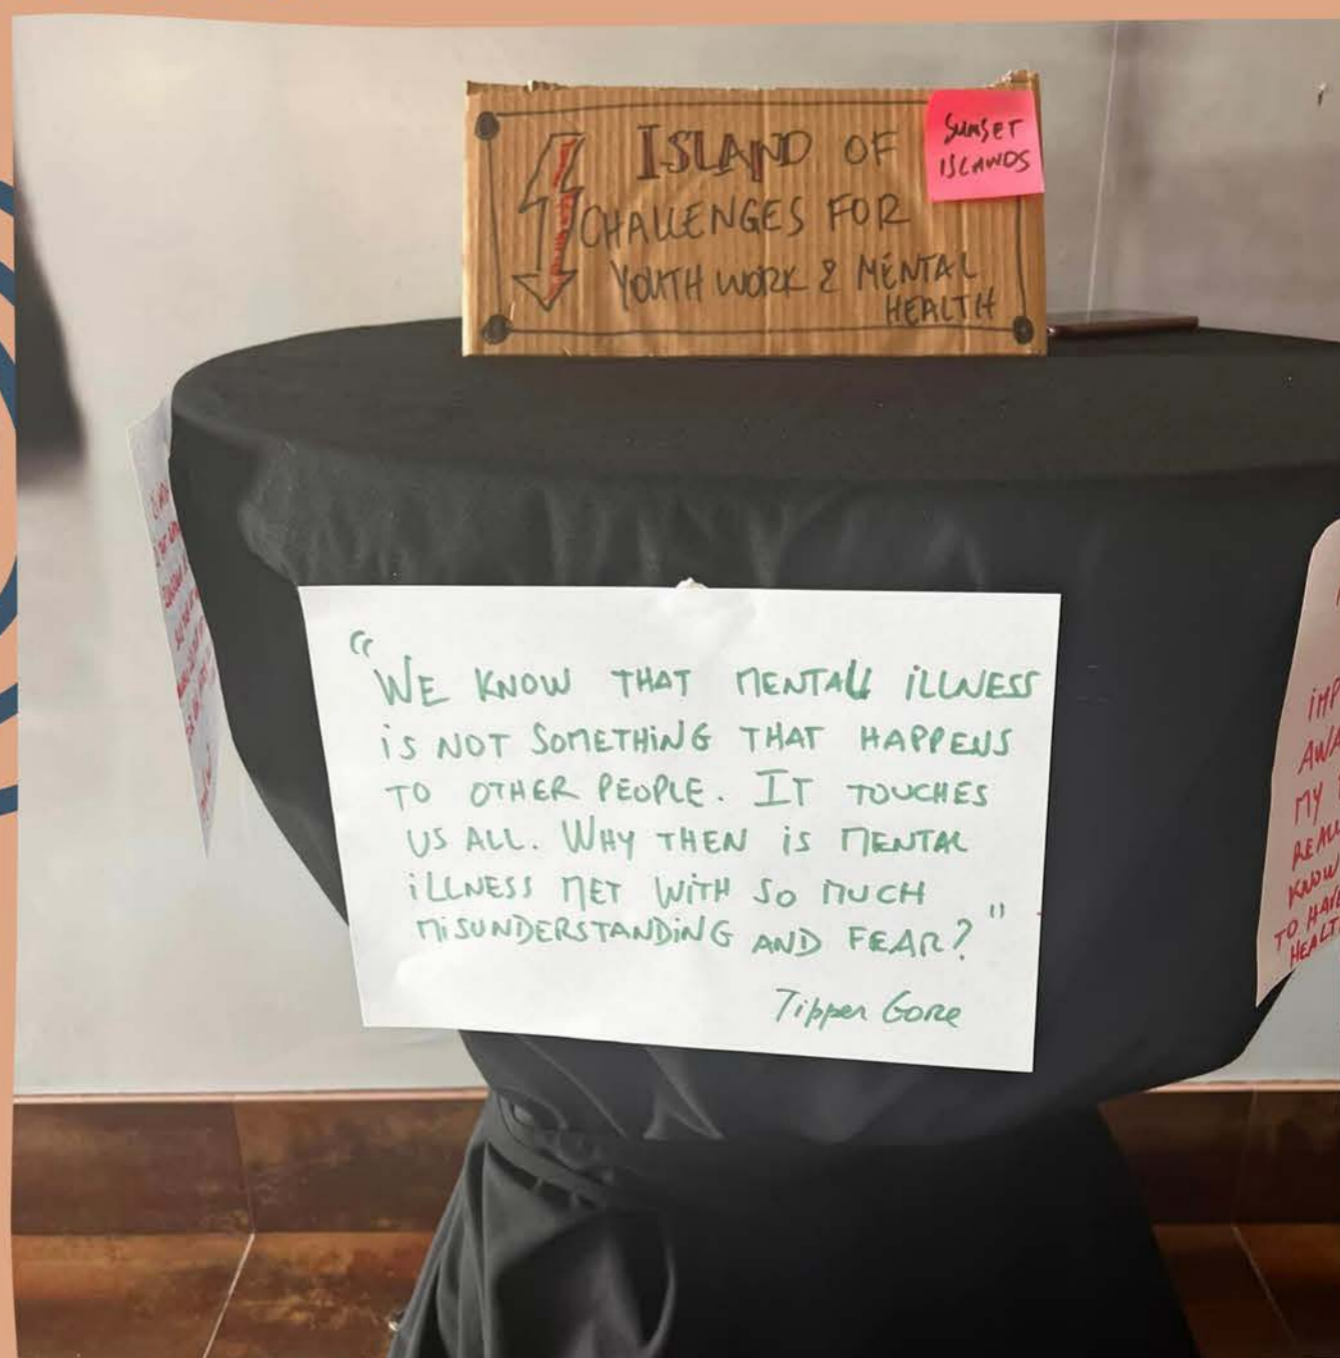 ISLAND OF
CHALLENGES FOR
YOUTH WORK & MENTAL
HEALTH
SUNSET
ISLANDS
"WE KNOW THAT MENTALL ILLNESS
IS NOT SOMETHING THAT HAPPENS
TO OTHER PEOPLE. IT TOUCHES
US ALL. WHY THEN IS MENTAL
ILLNESS MET WITH SO MUCH
MISUNDERSTANDING AND FEAR?"
Tipper Gore
MY
KNOW
TO